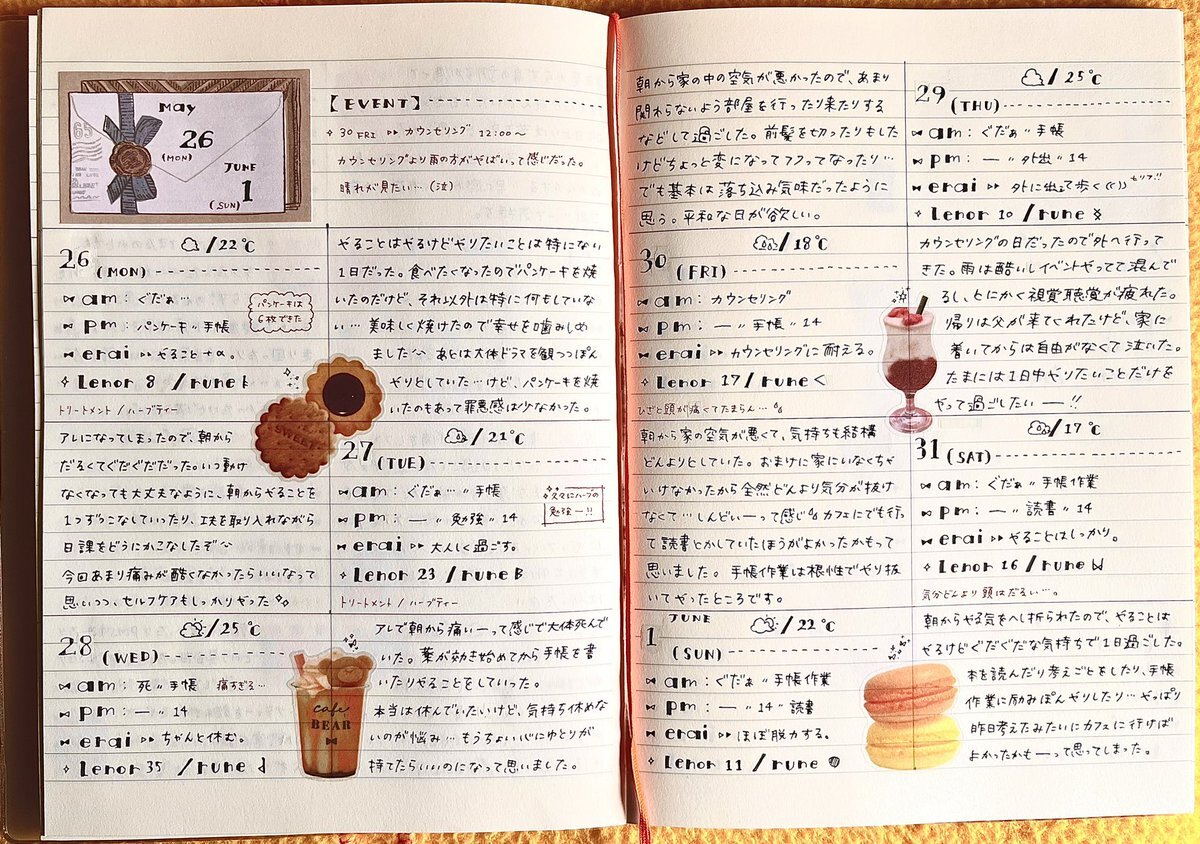 May
26
(MON)
JUNE
1
(SUN)
【EVENT】
30 FRI ▷▷ カウンセリング 12:00〜
カウンセリングより雨の方がやばいって感じだった。
晴れが見たい…(泣)
26 (MON)
/22℃
am: ぐだぁ…
pm: パンケーキ〃手帳
erai ▷▷ やること+α。
Lenor 8 /rune
トリートメント / ハーブティー
パンケーキは
6枚できた
やることはやるけどやりたいことは特にない
1日だった。食べたくなったのでパンケーキを焼
いたのだけど、それ以外は特に何もしていな
い… 美味しく焼けたので幸せを噛みしめ
ました あとは大体ドラマを観つつぽん
やりとしていた…けど、パンケーキを焼
いたのもあって罪悪感は少なかった。
SWEET
27 (TUE)
/21℃
am: ぐだぁ…〃手帳
pm: ー〃勉強〃14
erai ▷▷ 大人しく過ごす。
Lenor 23 /rune
トリートメント / ハーブティー
久々にハーブの
勉強ー!!
アレになってしまったので、朝から
だるくてぐだぐだだった。いつ動け
なくなっても大丈夫なように、朝からやることを
1つずつこなしていったり、工夫を取り入れながら
日課をどうにかこなしたぞ〜
今回あまり痛みが酷くなかったらいいなって
思いつつ、セルフケアもしっかりやった
28 (WED)
/25℃
am: 死〃手帳 痛すぎる…
pm: ー〃14
erai ▷▷ ちゃんと休む。
Lenor 35 /rune
cafe
BEAR
アレで朝から痛いーって感じで大体死んで
いた。薬が効き始めてから手帳を書
いたりやることをしていった。
本当は休んでいたいけど、気持ち休めな
いのが悩み… もうちょい心にゆとりが
持てたらいいのになって思いました。
29 (THU)
/25℃
am: ぐだぁ〃手帳
pm: ー〃外出〃14
erai ▷▷ 外に出て歩く セリア!!
Lenor 10 /rune
朝から家の中の空気が悪かったので、あまり
関わらないよう部屋を行ったり来たりする
などして過ごした。前髪を切ったりもした
けどちょっと変になってフクッてなったり…
でも基本は落ち込み気味だったように
思う。平和な日が欲しい。
30 (FRI)
/18℃
am: カウンセリング
pm: ー〃手帳〃14
erai ▷▷ カウンセリングに耐える。
Lenor 17 /rune
ひざと頭が痛くてたまらん…
カウンセリングの日だったので外へ行って
きた。雨は酷いしイベントやってて混んで
るし、とにかく視覚聴覚が疲れた。
帰りは父が来てくれたけど、家に
着いてからは自由がなくて泣いた。
たまには1日中やりたいことだけを
やって過ごしたいー!!
31 (SAT)
/17℃
am: ぐだぁ〃手帳作業
pm: ー〃読書〃14
erai ▷▷ やることはしっかり。
Lenor 16 /rune
気分どんより 頭はだるい…。
朝から家の空気が悪くて、気持ちも結構
どんよりとしていた。おまけに家にいなくちゃ
いけなかったから全然どんより気分が抜け
なくて…しんどいーって感じ カフェにでも行っ
て読書とかしていたほうがよかったかもって
思いました。手帳作業は根性でやり抜
いてやったところです。
JUNE
1 (SUN)
/22℃
am: ぐだぁ〃手帳作業
pm: ー〃14〃読書
erai ▷▷ ほぼ脱力する。
Lenor 11 /rune
朝からやる気をへし折られたので、やることは
やるけどぐだぐだな気持ちで1日過ごした。
本を読んだり考えごとをしたり、手帳
作業に励みぽんやりしたり…やっぱり
昨日考えたみたいにカフェに行けば
よかったかもーって思ってしまった。